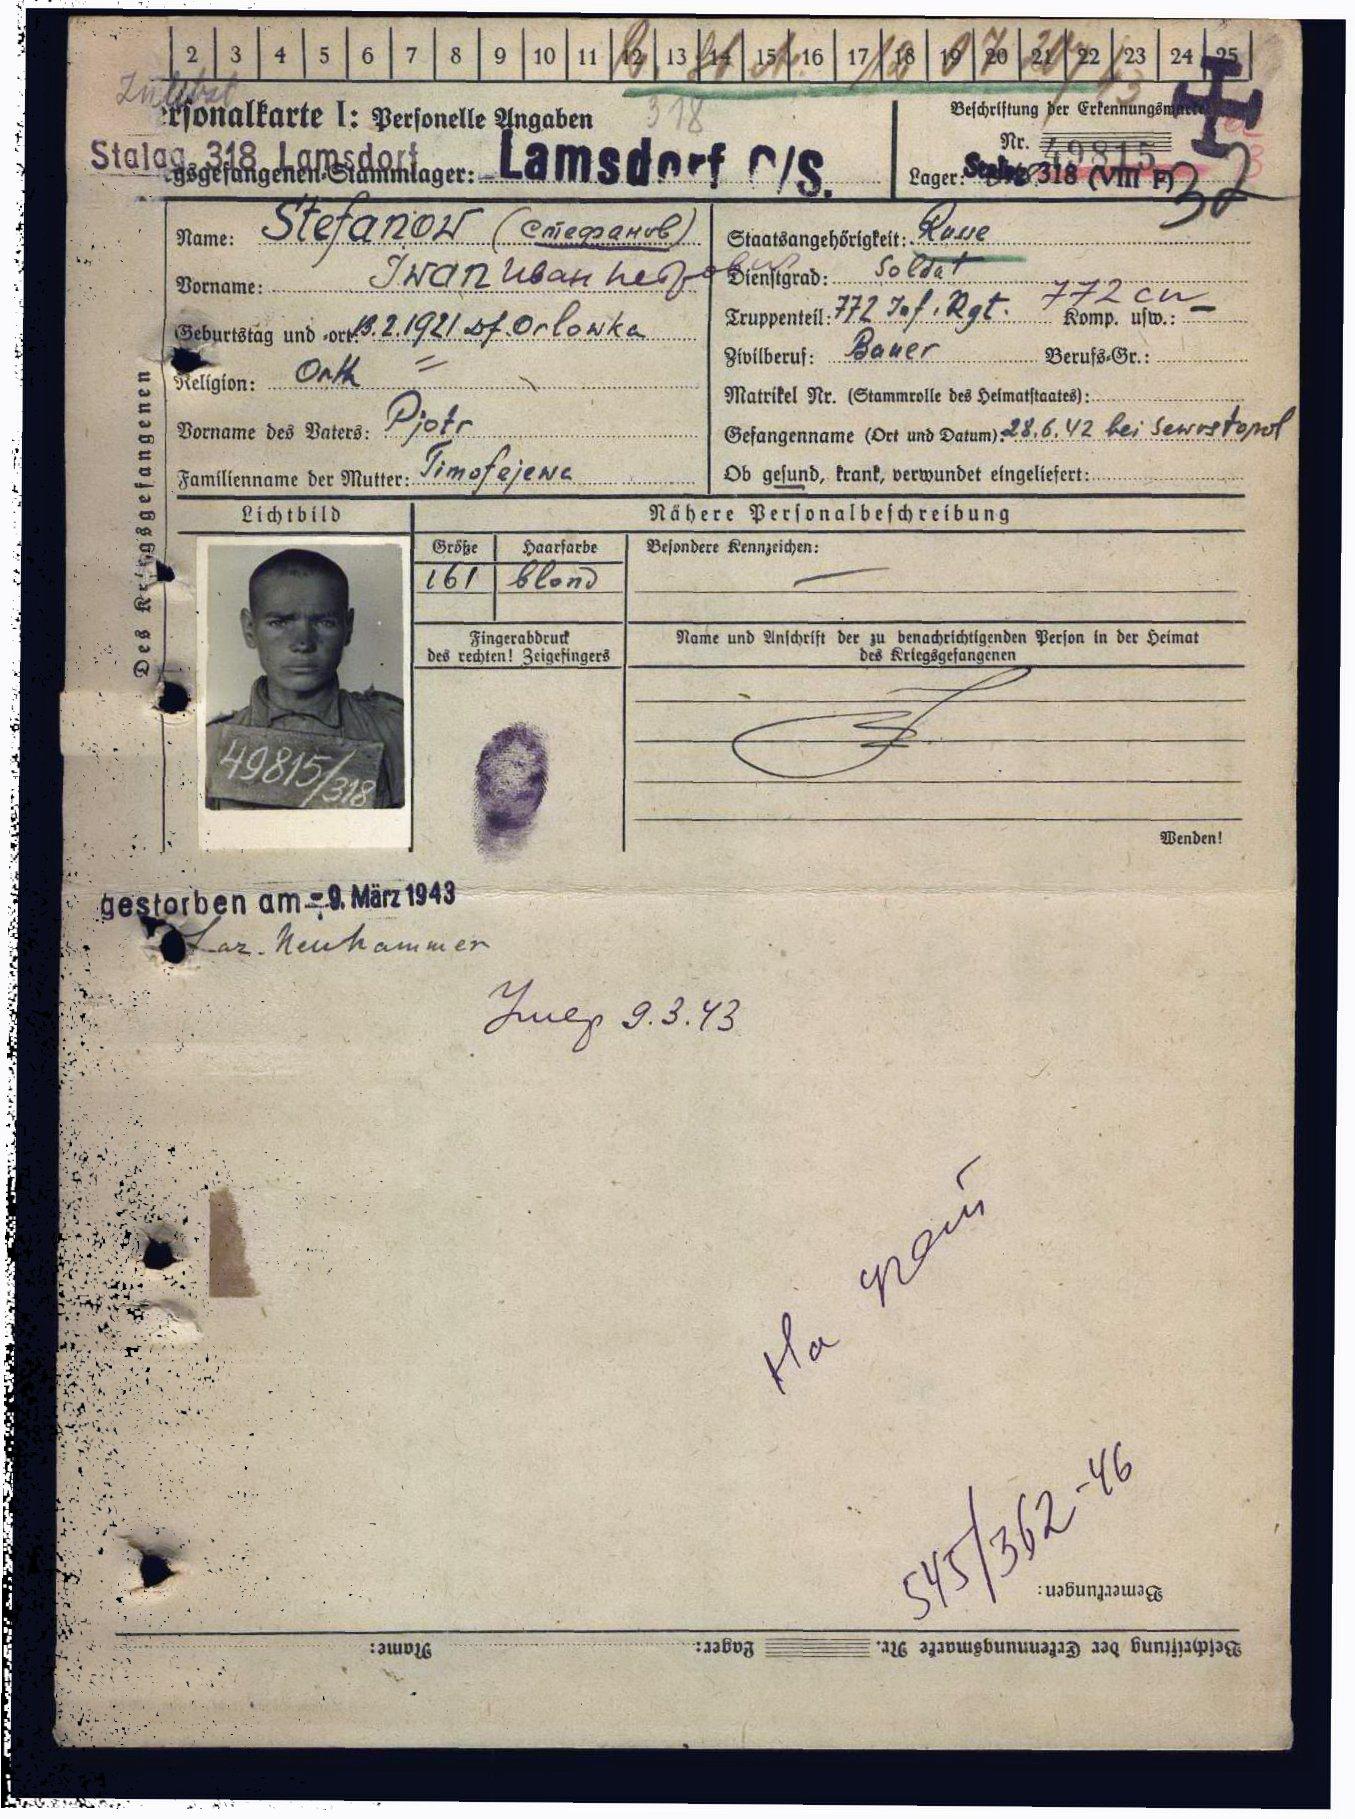 2 3 4 5 6 7 8 9 10 11 12 13 14 15 16 17 18 19 20 21 22 23 24 25
318
ersonalkarte I: Personelle Angaben
Beschriftung der Erkennungsmarke
Nr. 49815
Stalag 318 Lamsdorf
gsgefangenen-Stammlager: Lamsdorf O/S.
Lager: Stalag 318 (VIII F)
32
Name: Stefanow (Стефанов)
Vorname: Iwan Иван Петрович
Geburtstag und -ort: 13.2.1921 Df. Orlowka
Religion: Orth
Vorname des Vaters: Pjotr
Familienname der Mutter: Timofejewa
Staatsangehörigkeit: Russe
Dienstgrad: Soldat
Truppenteil: 772 Inf. Rgt. 772 сп Komp. usw.: –
Zivilberuf: Bauer Berufs-Gr.:
Matrikel Nr. (Stammrolle des Heimatstaates):
Gefangenname (Ort und Datum): 28.6.42 bei Sewostopol
Ob gesund, krank, verwundet eingeliefert:
Des Kriegsgefangenen
Lichtbild
Nähere Personalbeschreibung
Größe Haarfarbe Besondere Kennzeichen:
161 blond —
Fingerabdruck
des rechten! Zeigefingers
Name und Anschrift der zu benachrichtigenden Person in der Heimat
des Kriegsgefangenen
49815/318
Wenden!
gestorben am - 9. März 1943
Laz. Neuhammer
Умер 9.3.43
На
545/362-46
Bemerkungen:
Beschriftung der Erkennungsmarke Nr. Lager: Name: